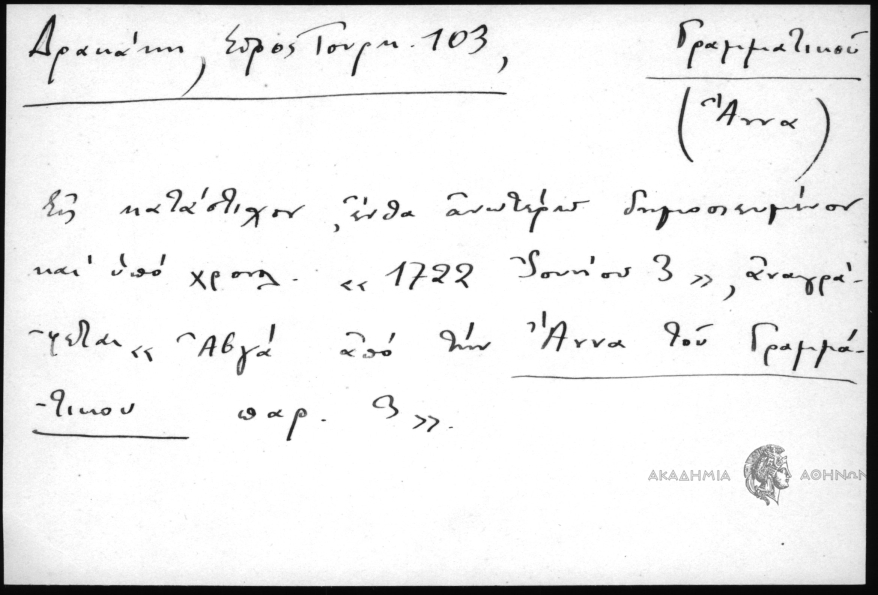 Δρακάκη, Σῦρος Τουρκ. 103,
Γραμματικοῦ
(Ἄννα)
Εἰς κατάστιχον, ἔνθα ἀνωτέρω δημοσιευμένον
καὶ ὑπὸ χρονλ. «1722 Ἰουνίου 3», ἀναγρά-
φεται « Ἀβγά ἀπὸ τὴν Ἄννα τοῦ Γραμμά-
-τικου παρ. 3».
ΑΚΑΔΗΜΙΑ ΑΘΗΝΩΝ